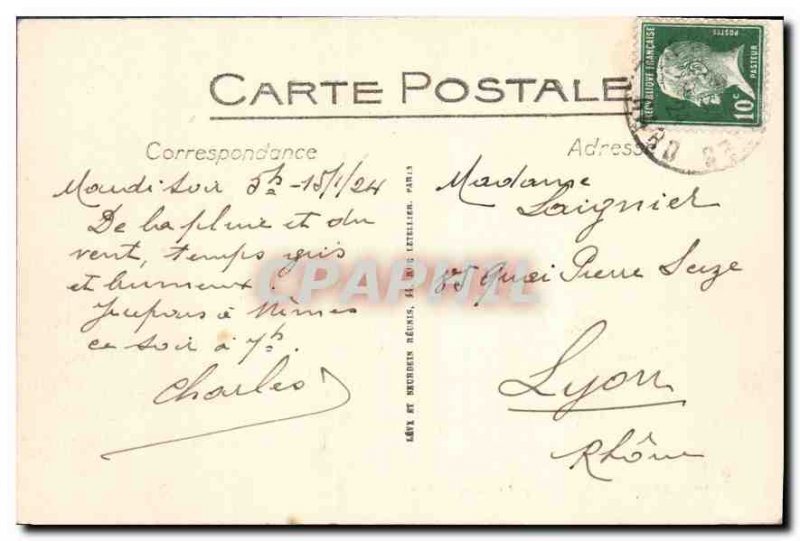 CARTE POSTALE
RÉPUBLIQUE FRANÇAISE
POSTES
PASTEUR
10c
GARD
Correspondance
Adresse
Mardi soir 5h - 15/1/24
De la pluie et du
vent, temps gris
et brumeux.
Je pars à Nîmes
ce soir à 7h.
Charles
LÉVY ET NEURDEIN RÉUNIS, 44, RUE LETELLIER, PARIS
Madame
Laignier
85 Quai Pierre Scize
Lyon
Rhône
CPAPHIL